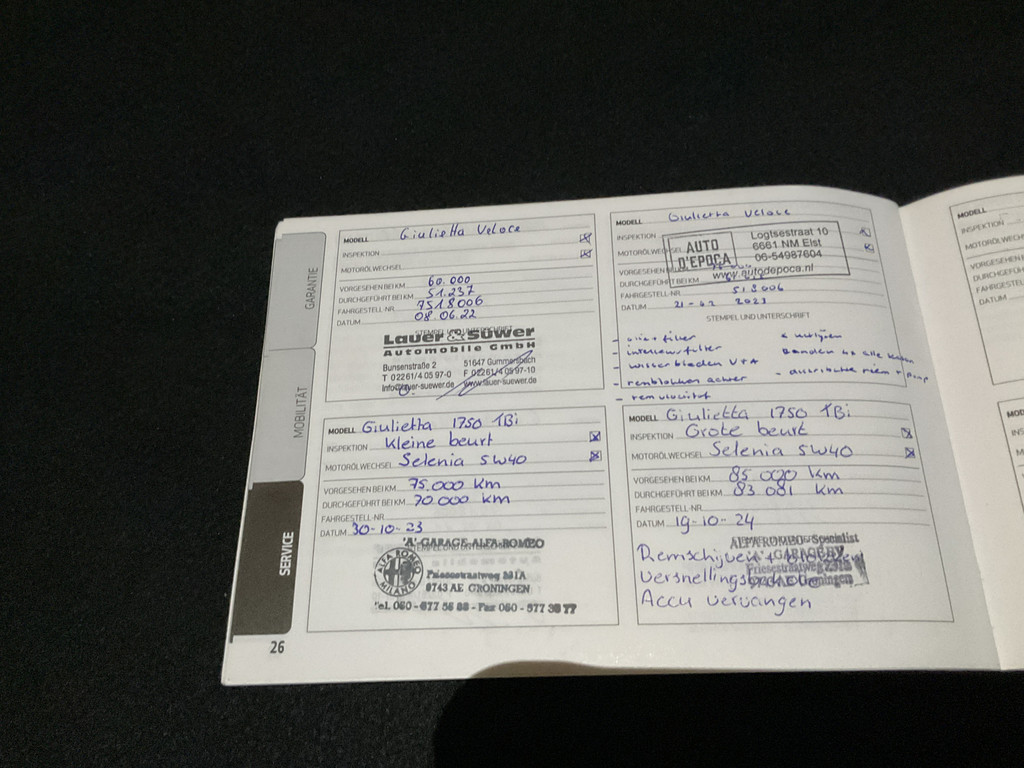 GARANTIE
MOBILITÄT
SERVICE
MODELL Giulietta Veloce
INSPEKTION
MOTORÖLWECHSEL
VORGESEHEN BEI KM 60.000
DURCHGEFÜHRT BEI KM 51.237
FAHRGESTELL-NR 7518006
DATUM 08.06.22
STEMPEL UND UNTERSCHRIFT
Lauer & Süwer
Automobile GmbH
Bunsenstraße 2 51647 Gummersbach
T 02261/4 05 97-0 F 02261/4 05 97-10
Info@lauer-suewer.de www.lauer-suewer.de
MODELL Giulietta Veloce
INSPEKTION
MOTORÖLWECHSEL
VORGESEHEN BEI KM
DURCHGEFÜHRT BEI KM
FAHRGESTELL-NR 518006
DATUM 2023
AUTO D'EPOCA
Logtsestraat 10
6661 NM Elst
06-54987604
www.autodepoca.nl
STEMPEL UND UNTERSCHRIFT
- filter
- interieurfilter
- wisserbladen V+A
- remblokken achter
-
MODELL Giulietta 1750 TBi
INSPEKTION Kleine beurt
MOTORÖLWECHSEL Selenia 5W40
VORGESEHEN BEI KM 75.000 km
DURCHGEFÜHRT BEI KM 70.000 km
FAHRGESTELL-NR
DATUM 30-10-23
STEMPEL UND UNTERSCHRIFT
'A' GARAGE ALFA-ROMEO
ALFA ROMEO MILANO
Friesestraatweg 231A
9743 AE GRONINGEN
Tel. 050 - 577 55 88 - Fax 050 - 577 38 77
MODELL Giulietta 1750 TBi
INSPEKTION Grote beurt
MOTORÖLWECHSEL Selenia 5W40
VORGESEHEN BEI KM 85.000 km
DURCHGEFÜHRT BEI KM 83.081 km
FAHRGESTELL-NR
DATUM 19-10-24
ALFA ROMEO Specialist
'A' GARAGE BV
Friesestraatweg 231A
Groningen
Remschijven +
Accu vervangen
26
MODELL
INSPEKTION
MOTORÖLWECH
VORGESEHEN
DURCHGEFÜ
FAHRGESTEL
DATUM